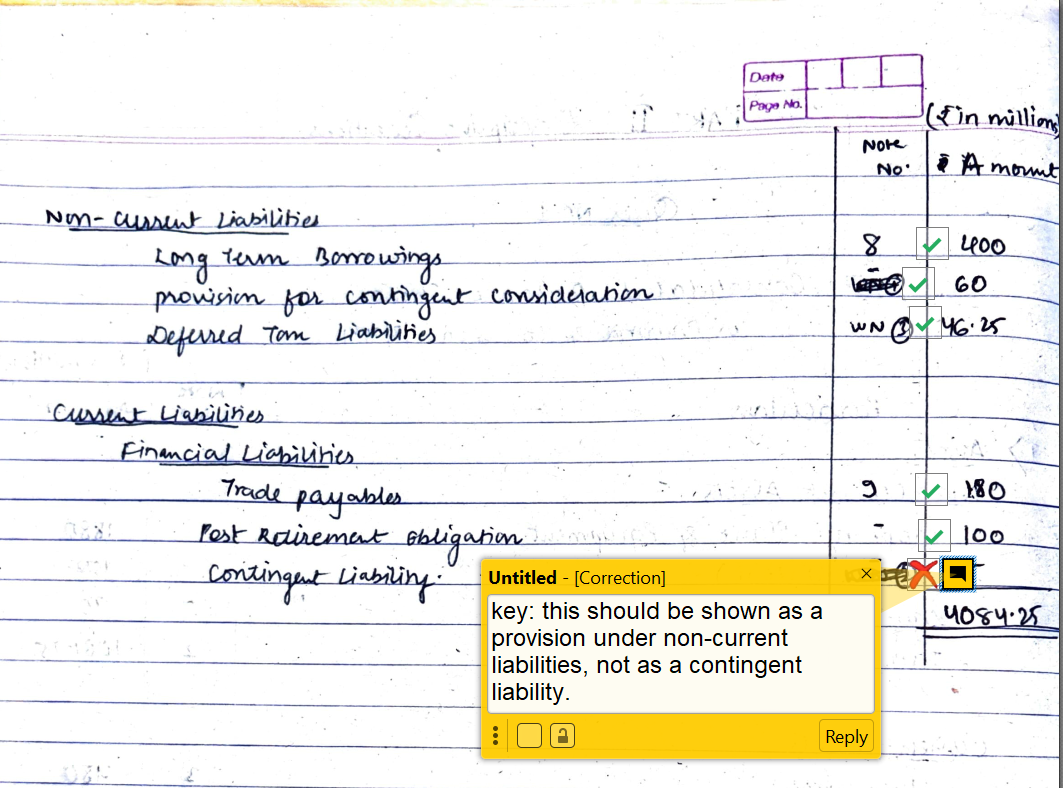 Date
Page No.
(₹ in million)
Note
No.
Amount
Non-Current Liabilities
Long Term Borrowings 8 400
provision for contingent consideration - 60
Deferred Tax Liabilities WN (3) 46.25
Current Liabilities
Financial Liabilities
Trade payables 9 180
Post Retirement obligation - 100
Contingent Liability. 5
4084.25
Untitled - [Correction]
key: this should be shown as a
provision under non-current
liabilities, not as a contingent
liability.
Reply